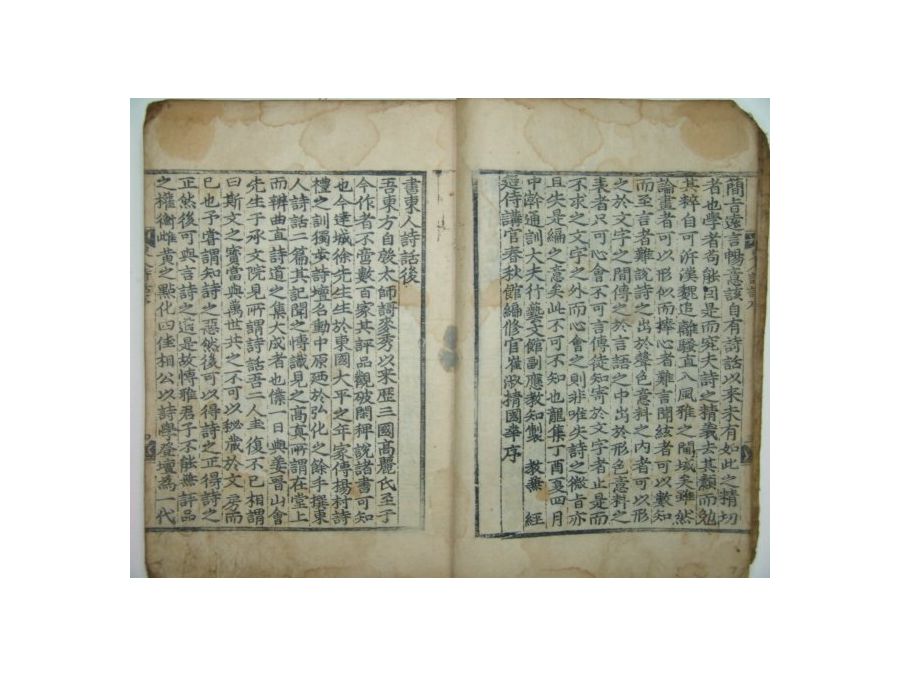 簡旨遠言暢意該自有詩話以來未有如此之精切
者也學者苟能因是而究夫詩之精義去其麤而勉
其粹自可泝漢魏追離騷直入風雅之閫域矣雖然
論畫者可以形似而捧心者難言聞絃者可以數知
而至言者難說詩之出於聲色意料之內者可以形
之於文字之間傳之於言語之中出於形色意料之
表者只可心會不可言傳徒知寄於文字者止是而
不求之文字之外而心會之則非唯失詩之微旨亦
且失是編之意矣此不可不知也龍集丁酉夏四月
中㪺通訓大夫行藝文館副應教知製 教兼 經
筵侍講官春秋館編修官崔淑精國華序
書東人詩話後
吾東方自殷太師歌麥秀以來歷三國高麗氏至于
今作者不啻數百家其評品觀破閑稗說諸書可知
也今達城徐先生生於東國大平之年家傳揚村詩
禮之訓獨步詩壇名動中原廼於弘化之餘手撰東
人詩話二篇其記聞之愽識見之高真所謂在堂上
而辨曲直詩道之集大成者也僕一日與姜晉山會
先生于承文院見所謂詩話吾二人圭復不已相謂
曰斯文之寶當與萬世共之不可以秘藏於文房而
已也予嘗謂知詩之惡然後可以得詩之正得詩之
正然後可與言詩之道是故愽雅君子不能無評品
之權衡雌黃之點化四佳相公以詩學登壇為一代